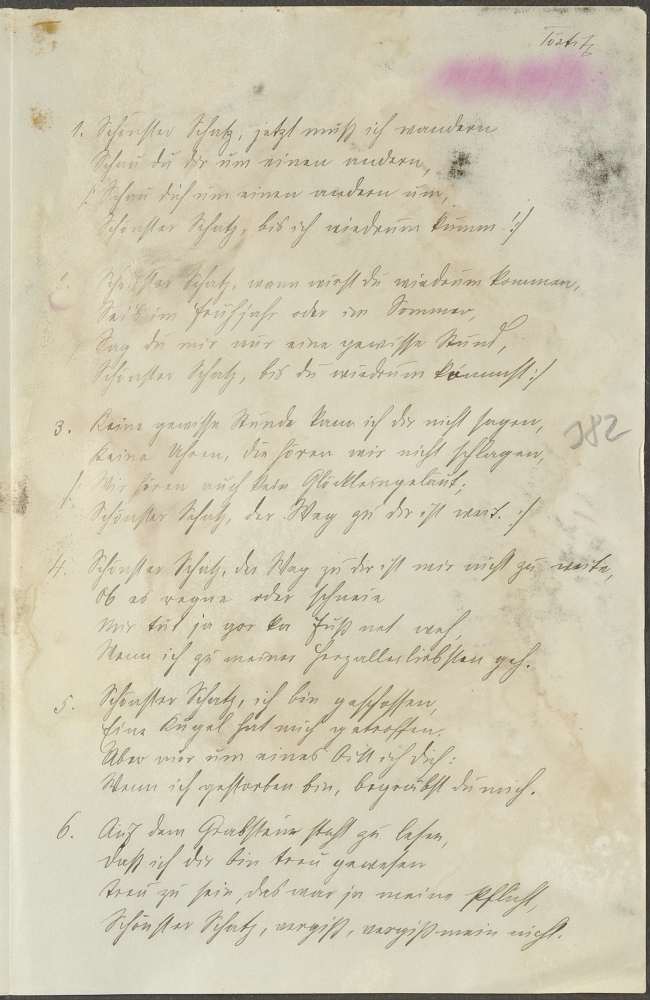 1. Schönster Schatz, jetzt muß ich wandern
Schau du dir um einen andern,
/: Schau dich um einen andern um,
Schönster Schatz, bis ich wiedrum kumm! :/
Schönster Schatz, wann wirst du wiedrum kommen,
Sei's im Frühjahr oder im Sommer,
Sag du mir nur eine gewisse Stund,
Schönster Schatz, bis du wiedrum kommst :/
3. Keine gewisse Stunde kann ich dir nicht sagen,
Keine Uhren, die hören wir nicht schlagen,
/: Wir hören auch kein Glöckleingeläut,
Schönster Schatz, der Weg zu dir ist weit. :/
4. Schönster Schatz, der Weg zu dir ist mir nicht zu weite,
Ob es regne oder schneie
Mir tut ja gor ka Fuß net weh,
Wenn ich zu meiner Herzallerliebsten geh.
5. Schönster Schatz, ich bin geschossen,
Eine Kugel hat mich getroffen.
Aber nur um eines bitt ich dich:
Wenn ich gestorben bin, begräbst du mich.
6. Auf dem Grabstein steht zu lesen,
Daß ich dir bin treu gewesen
Treu zu sein, das war ja meine Pflicht,
Schönster Schatz, vergiß, vergißmein nicht.
182